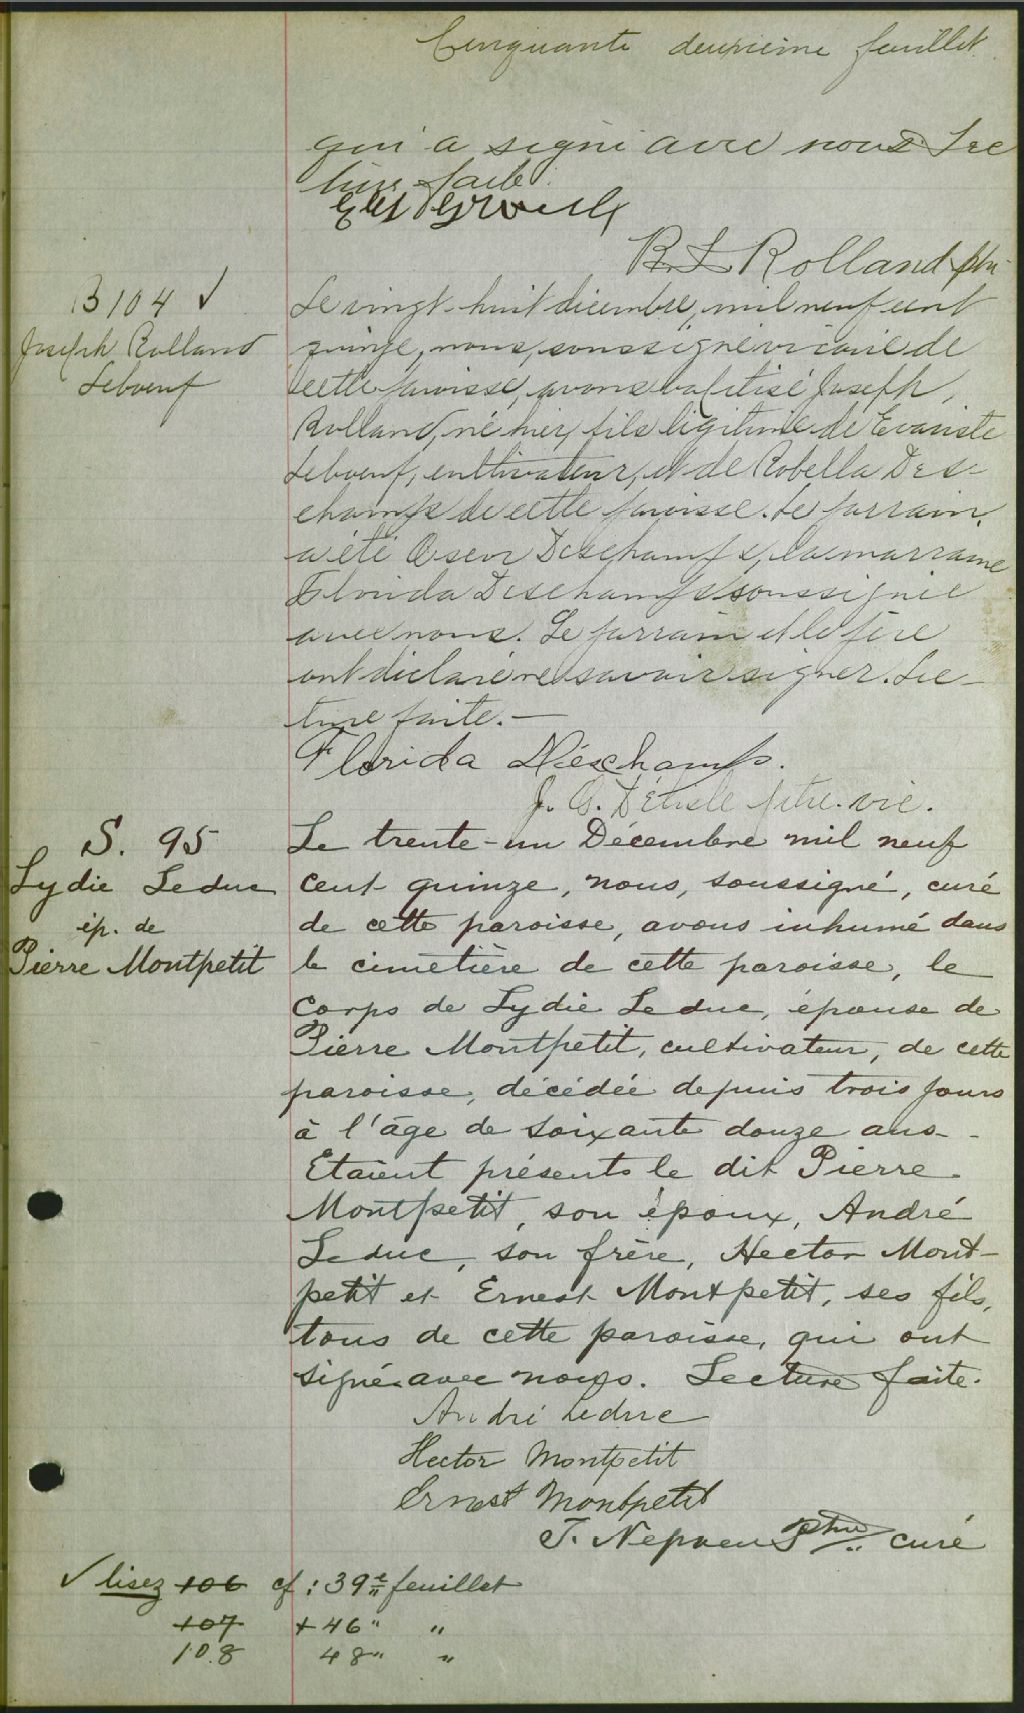 Cinquante deuxième feuillet.
qui a signé avec nous Lec
ture faite.
B. L. Rolland ptre
B 104 ✓
Joseph Rolland
Leboeuf
Le vingt-huit décembre, mil neuf cent
quinze, nous, soussigné vicaire de
cette paroisse, avons baptisé Joseph,
Rolland, né hier, fils légitime de Evariste
Leboeuf, cultivateur, et de Robella Des-
champs de cette paroisse. Le parrain
a été Oscar Deschamps, la marraine
Florida Deschamps soussignée
avec nous. Le parrain et le père
ont déclaré ne savoir signer. Lec-
ture faite. —
Florida Déschamps.
J. O. Délisle ptre. vic.
S. 95
Lydie Leduc
ép. de
Pierre Montpetit
Le trente-un Décembre mil neuf
cent quinze, nous, soussigné, curé
de cette paroisse, avons inhumé dans
le cimetière de cette paroisse, le
corps de Lydie Leduc, épouse de
Pierre Montpetit, cultivateur, de cette
paroisse, décédée depuis trois jours
à l'âge de soixante douze ans.
Etaient présents le dit Pierre
Montpetit, son époux, André
Leduc, son frère, Hector Mont-
petit et Ernest Montpetit, ses fils,
tous de cette paroisse, qui ont
signé avec nous. Lecture faite.
André Leduc
Hector Montpetit
Ernest Montpetit
T. Nepveu Ptre curé
✓ lisez 106 cf : 39e feuillet
107 + 46" "
108 48" "